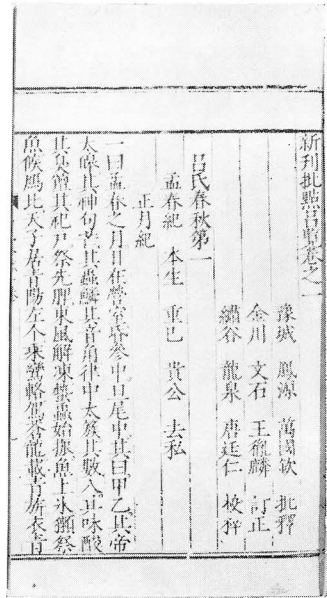 新刊批點呂覽卷之一
豫城 鳳 萬國欽 批釋
金川 文石 王 麟 訂正
繡谷 龍泉 唐廷仁 校梓
呂氏春秋第一
孟春紀 本生 重已 貴公 去私
正月紀
一曰孟春之月日在營室昏參中旦尾中其日甲乙其帝
太皞其神句芒其蟲鱗其音角律中太簇其數八其味酸
其臭羶其祀戶祭先脾東風解凍蟄蟲始振魚上氷獺祭
魚候鴈北天子居青陽左个乘鸞輅駕蒼龍載青旂衣青